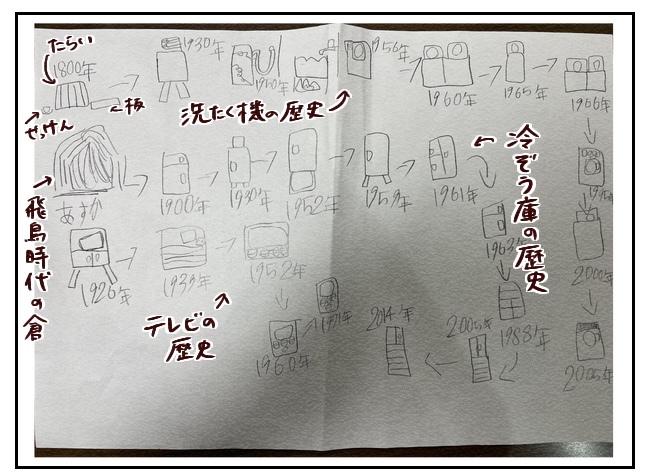 たらい
1800年
せっけん
板
1930年
1950年
1956年
1960年
1965年
1966年
洗たく機の歴史
2000年
2005年
飛鳥時代の倉
あすか
1900年
1930年
1952年
1959年
1961年
冷ぞう庫の歴史
1988年
2005年
2014年
1926年
1939年
1952年
1960年
テレビの
歴史